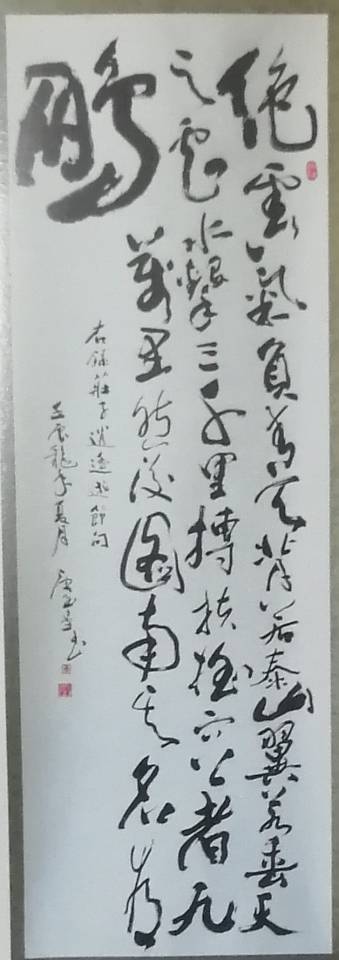 絕雲氣負青天背若泰山翼若垂天
之雲水擊三千里摶扶搖而上者九
萬里然後圖南其名為
鵬
右錄莊子逍遙遊節句
壬辰龍年夏月